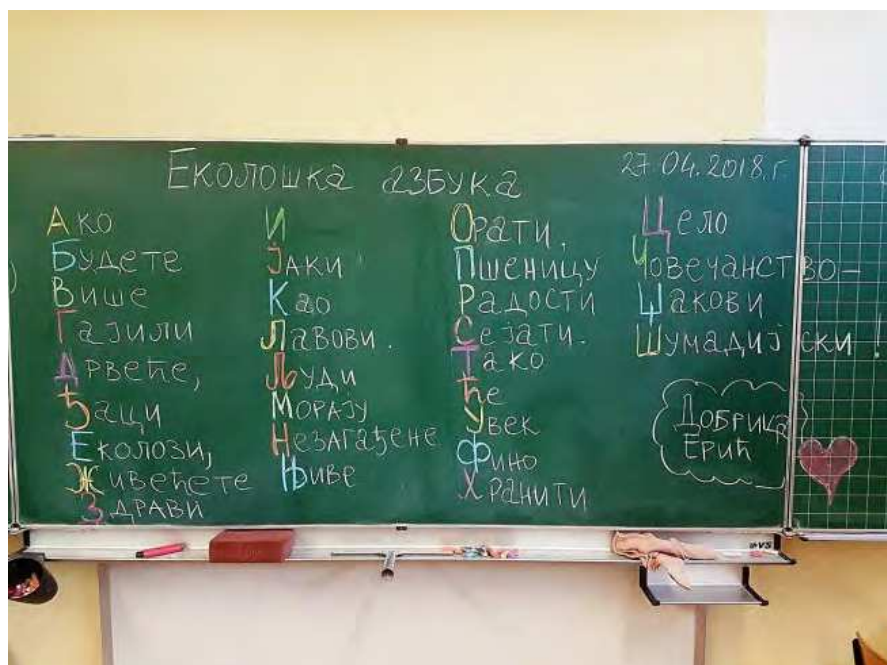 Еколошка азбука
27.04.2018.г
Ако
Будете
Више
Гајили
Дрвеће,
Ђаци
Еколози,
Живећете
Здрави
И
Јаки
Као
Лавови.
Људи
Морају
Незагађене
Њиве
Орати.
Пшеницу
Радости
Сејати.
Тако
Ће
Увек
Фино
Хранити
Цело
Човечанство-
Џакови
Шумадијски!
Добрица
Ерић